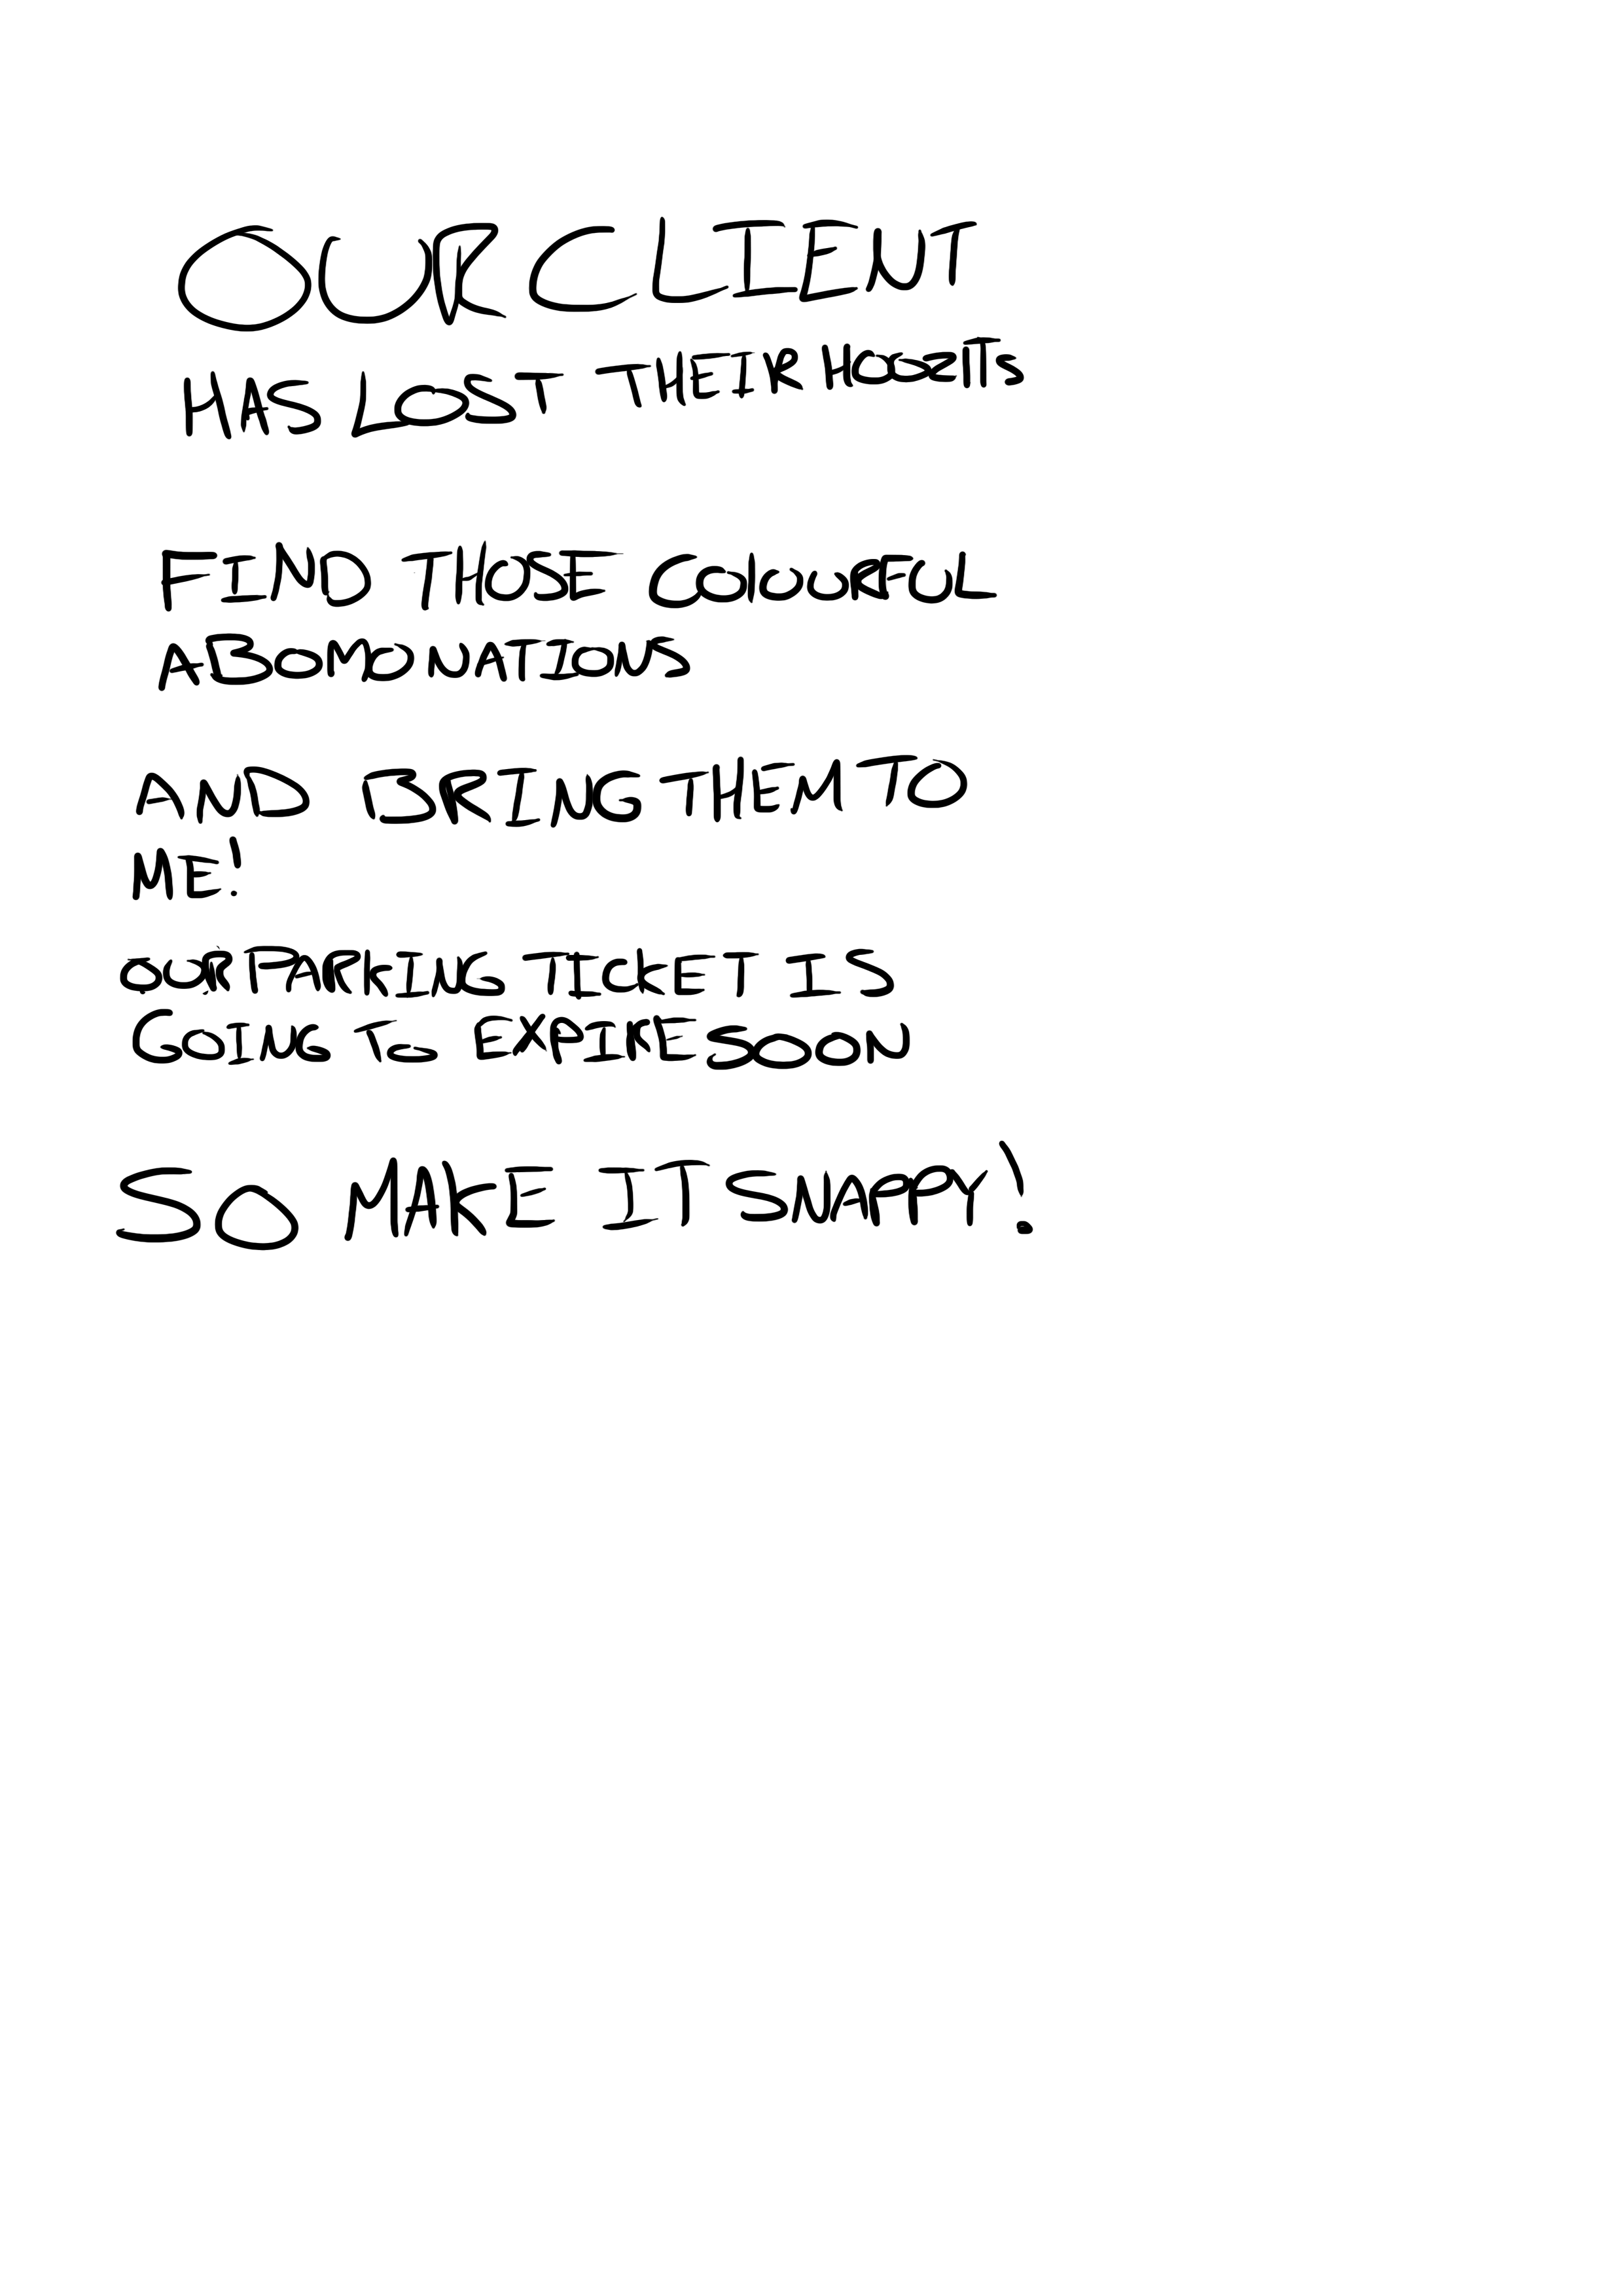 OUR CLIENT
HAS LOST THEIR
FIND THOSE COLOURFUL
ABOMONATIONS
AND BRING THEM TO
ME!
OUR PARKING TICKET IS
GOING TO EXPIRE SOON
SO MAKE IT SNAPPY!